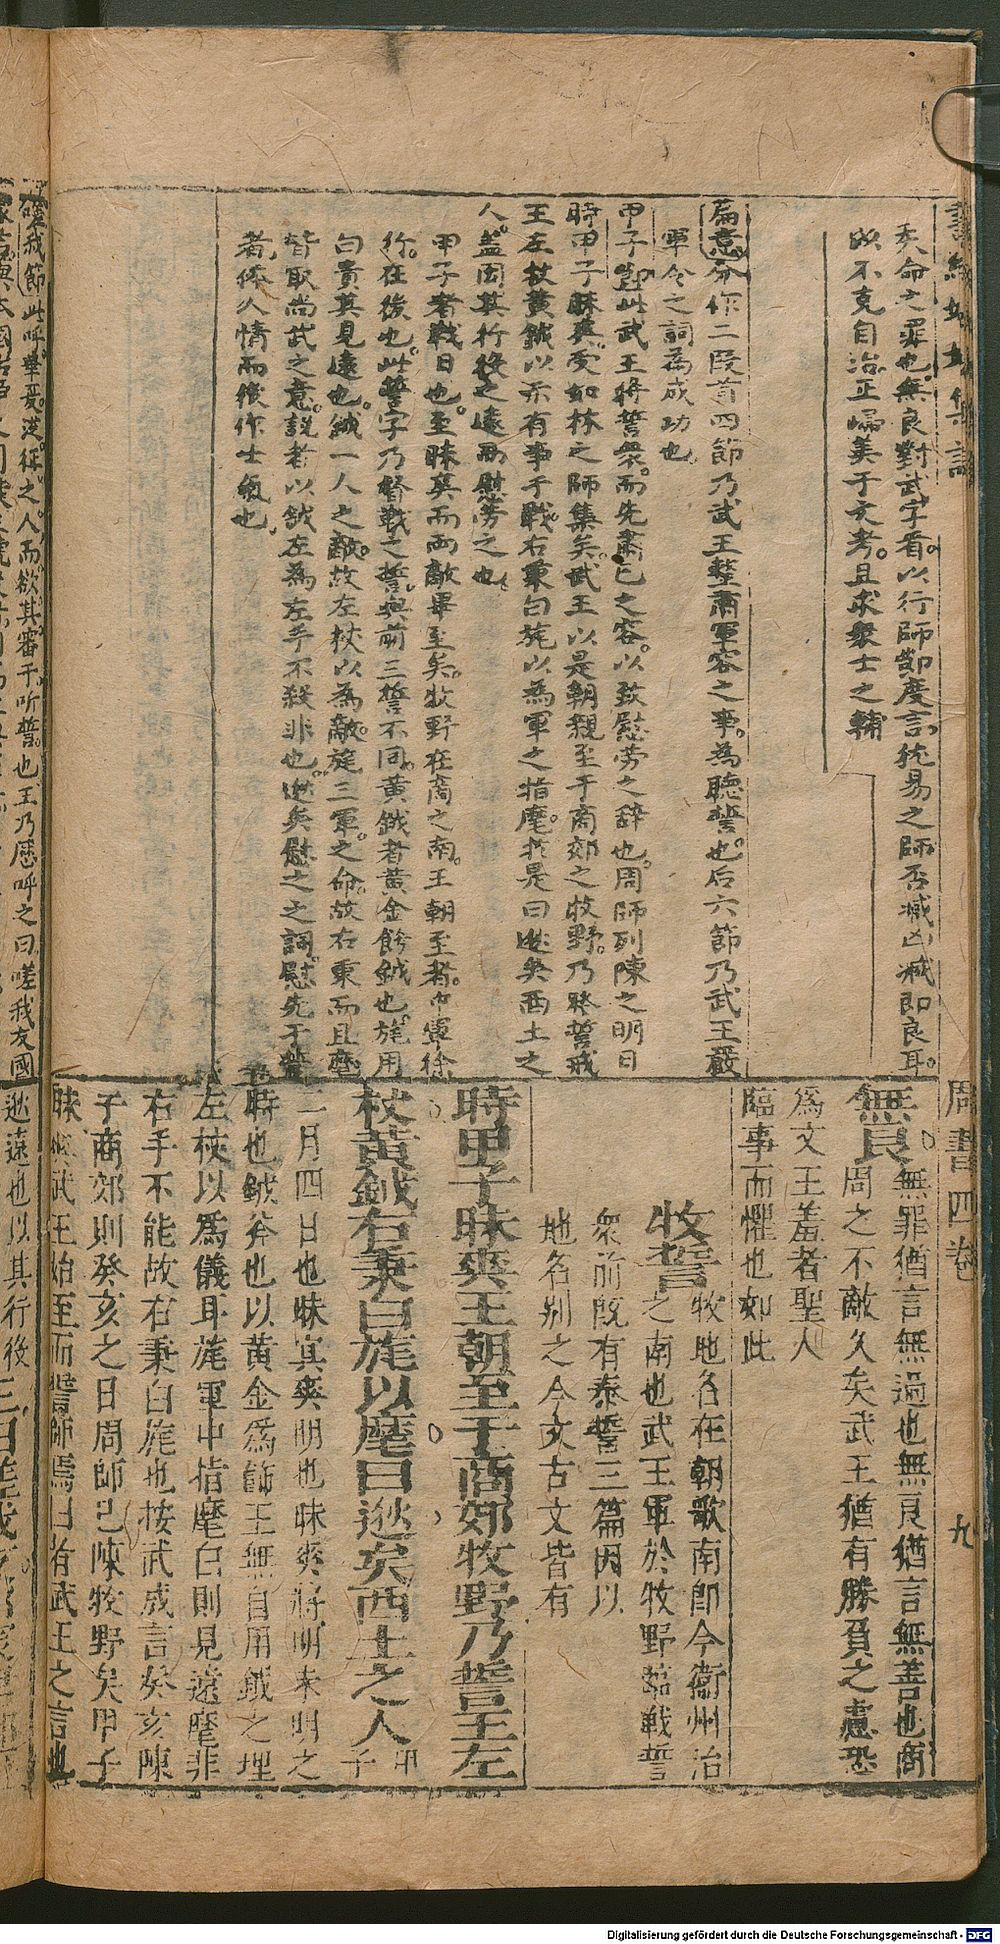 天命之罪也無良對武字看以行師節度言從易之師否臧凶臧即良耳
以不克自治正歸美于文考且求衆士之輔
篇意分作二段首四節乃武王整肅軍容之事為聽誓也后六節乃武王嚴
軍令之詞為成功也
甲子節此武王將誓衆而先肅己之容以致慰勞之辭也周師列陳之明日
時甲子昧爽受如林之師集矣武王以是朝親至于商郊之牧野乃將誓戒
王左杖黃鉞以示有事于戰右秉白旄以為軍之指麾於是曰逖矣西土之
人蓋因其行役之遠而慰勞之也
甲子者戰日也至昧爽而兩敵畢至矣牧野在商之南王朝至者中軍徐
行在後也此誓字乃督戰之誓與前三誓不同黃鉞者黃金飾鉞也旄用
白貴其見遠也鉞一人之敵故左杖以為敵旄三軍之命故右秉而且麾
皆取尚武之意說者以鉞左為左手不殺非也逖矣慰之之詞慰先于誓
者体人情而後作士氣也
周書四卷 九
無良無罪猶言無過也無良猶言無善也商
周之不敵久矣武王猶有勝負之慮恐
爲文王羞者聖人
臨事而懼也如此
牧誓牧地名在朝歌南即今衞州治
之南也武王軍於牧野臨戰誓
衆前既有泰誓三篇因以
地名别之今文古文皆有
時甲子昧爽王朝至于商郊牧野乃誓王左
杖黃鉞右秉白旄以麾曰逖矣西土之人甲子
二月四日也昧冥爽明也昧爽將明未明之
時也鉞斧也以黃金爲飾王無自用鉞之理
左杖以爲儀耳旄軍中指麾白則見遠麾非
右手不能故右秉白旄也按武成言癸亥陳
于商郊則癸亥之日周師已陳牧野矣甲子
昧爽武王始至而誓師焉曰者武王之言也
逖遠也以其行役
嗟我節此呼畢爰從征之人而欲其審于听誓也王乃歷呼之曰嗟我友國
Digitalisierung gefördert durch die Deutsche Forschungsgemeinschaft - DFG